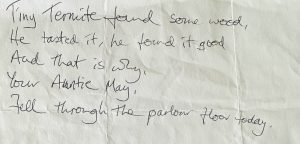 Tiny Termite found some wood,
He tasted it, he found it good
And that is why,
Your Auntie May,
Fell through the parlour floor today.